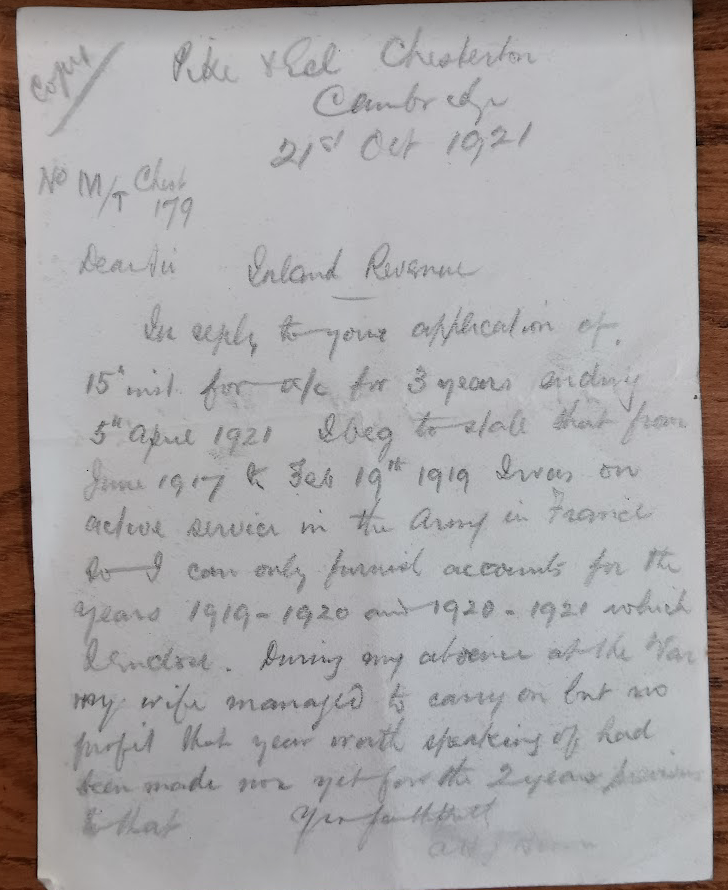 Copy/
Pike & Eel Chesterton
Cambridge
21st Oct 1921
No M/T Chest
179
Dear Sir Inland Revenue
In reply to your application of
15th inst. for a/c for 3 years ending
5th April 1921 I beg to state that from
June 1917 to Feb 19th 1919 I was on
active service in the Army in France
so I can only furnish accounts for the
years 1919-1920 and 1920-1921 which
I enclose. During my absence at the War
my wife managed to carry on but no
profit that year worth speaking of had
been made nor yet for the 2 years previous
to that Yrs faithfull